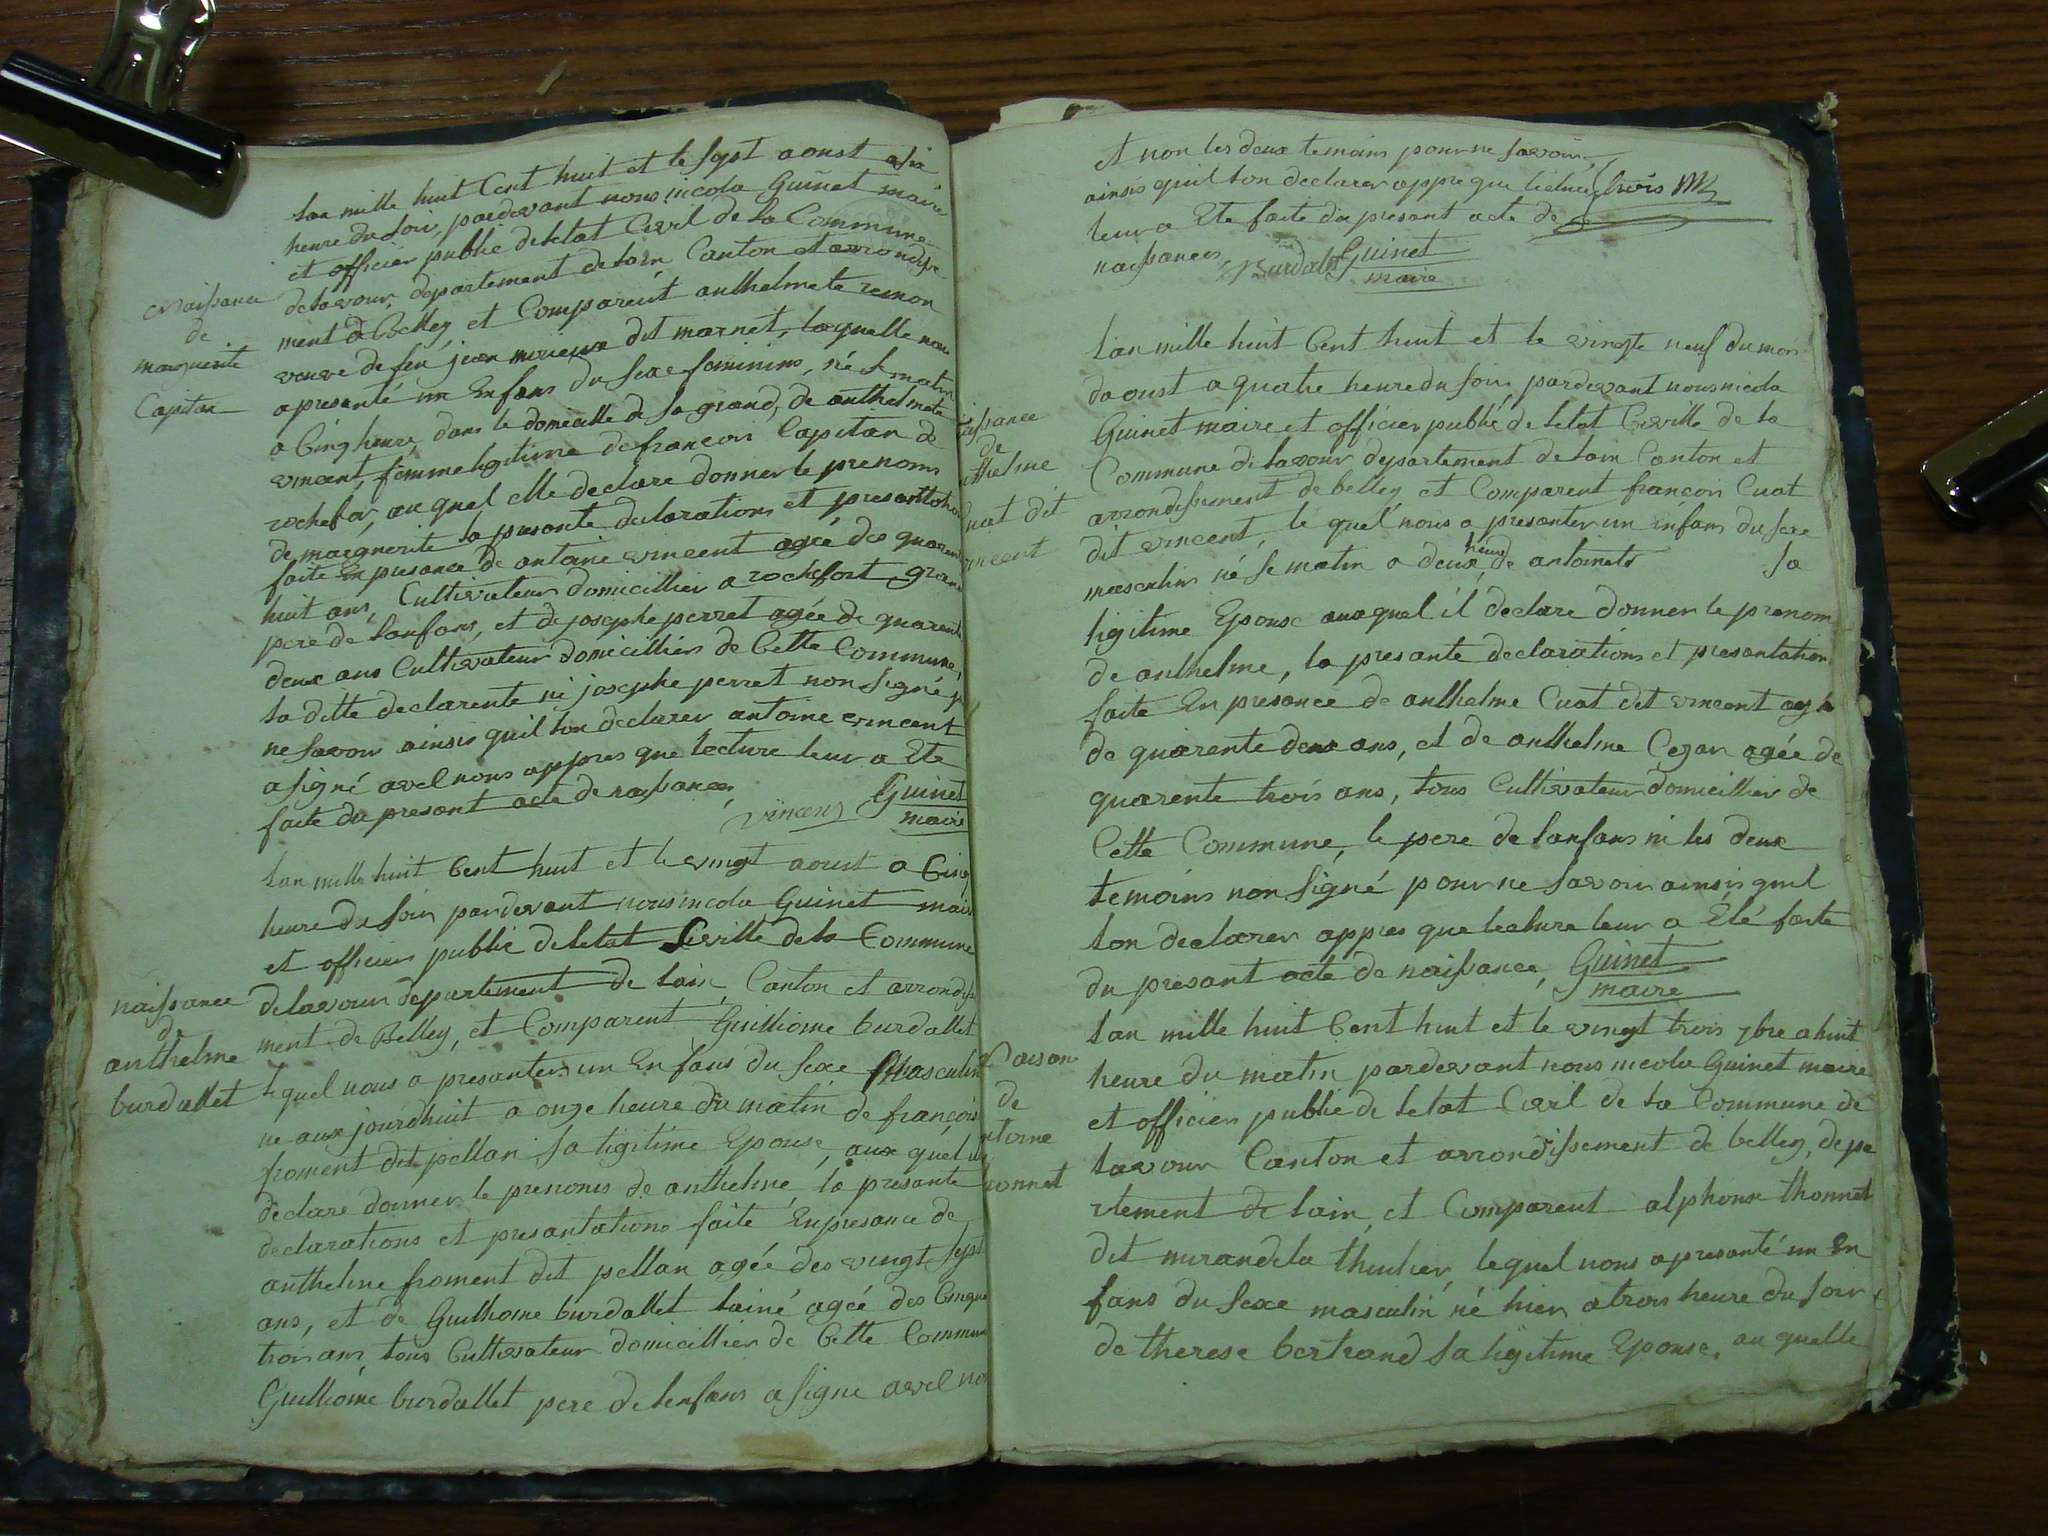 Lan mille huit Cent huit et le sept aoust a six
heure du soir, pardevant nous nicola Guinet maire
et officier public deletat Civil de la Commune
delavour, departement de lain Canton et arrondisse
ment de Belley, et Comparent anthelmete
veuve de feu jean dit marnet, laquelle nous
a presanté un Enfans du sexe feminins, né le matin
a Cinq heure, dans le domicille de sa grand, de anthelmete
vincent, femme legitime de francois Capitan de
rochefor, au quel elle declare donner le prenoms
de marguerite la presante declarations et presantation
faite En presance de antoine vincent ageé des quarente
huit ans, Cultivateur domicillier a rochefort grand
pere de lanfans, et de josephe perret agée de quarente
deux ans Cultivateur domicilliers de Cette Commune,
la ditte declarente ni josephe perret non signé p
ne savoir ainsis quil lon declarer antoine vincent
a signé avec nous appres que lecture leur a Ete
faite du present acte de naissances,
vincens Guinet
maire
Naissance
de
marguerite
Capitan
Lan mille huit Cent huit et le vingt aoust a Cinq
heure du soir pardevant nous nicola Guinet maire
et officier public deletat Civille dela Commune
delavour departement de lain, Canton et arrondisse
ment de Belley, et Comparent Guilliome burdallet
lequel nous a presanter un Enfans du sexe Masculin
ne aux jourdhuit a onze heure du matin de francois
froment dit pellan sa ligitime Epouse, aux quel il
declare donner le prenoms de anthelme, la presante
declarations et presantations faite En presance de
anthelme froment dit pellan agée des vingt sept
ans, et de Guilliome burdallet lainé agée des Cinquente
trois ans, tous Cultivateur domicillier de Cette Commune
Guilliome burdallet pere de lenfans a signe avec no
naissance
de
anthelme
burdallet
et non les deux temoins pour ne savoir,
ainsis quil lon declarer appre que lecture trois
leur a Ete faite du presant acte de
naissances, Burdalet Guinet
maire
Lan mille huit Cent huit et le vingte neuf du mois
daoust a quatre heure du soir, pardevant nous nicola
Guinet maire et officier public deletat Civille de la
Commune de lavour departement de lain Canton et
arrondissement de belley, et Comparent francois Cuat
dit vincent, le quel nous a presanter un enfans du sexe
masculins né le matin a deux heure de antoinete sa
ligitime Epouse auxquel il declare donner le prenom
de anthelme, la presante declarations et presantation
faite En presance de anthelme Cuat dit vincent agée
de quarente deux ans, et de anthelme Cezar agée de
quarente trois ans, tous Cultivateur domicillier de
Cette Commune, le pere de lanfans ni les deux
temoins non signé pour ne savoir ainsis quil
lon declarer appres que lecture leur a Eté faite
du presant acte de naissance, Guinet
maire
aissance
de
thelme
uat dit
incent
Lan mille huit Cent huit et le vingt trois 7bre a huit
heure du matin pardevant nous nicola Guinet maire
et officier public de letat Civil de la Commune de
lavour Canton et arrondissement de belley, depa
rtement de lain, et Comparent alphonse thonnet
dit lequel nous a presanté un En
fans du sexe masculin né hier a trois heure du soir
de therese bertrand sa ligitime Epouse, au quelle
de
ntoine
onnet